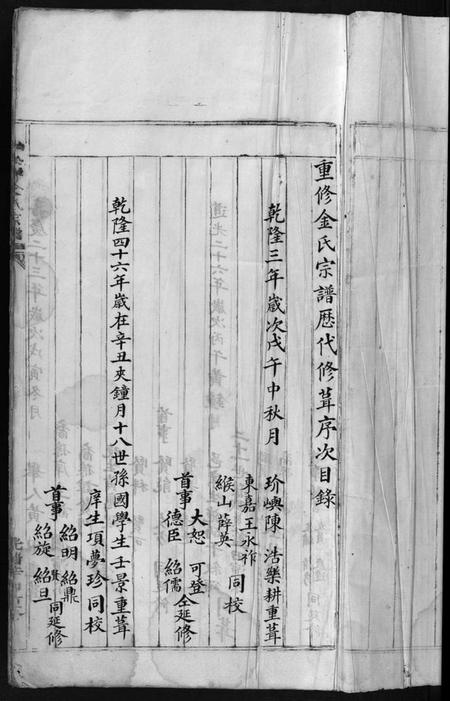 重修金氏宗譜歷代修葺序次目錄
乾隆三年歲次戊午中秋月 玠嶼陳浩樂耕重葺
東嘉王永祚
緱山薛英 同校
首事 大恕 可登
德臣 紹儒 仝延修
乾隆四十六年歲在辛丑夾鐘月十八世孫國學生士景重葺
庠生項夢珍同校
首事 紹明 紹鼎
紹旋 紹旦 同延修